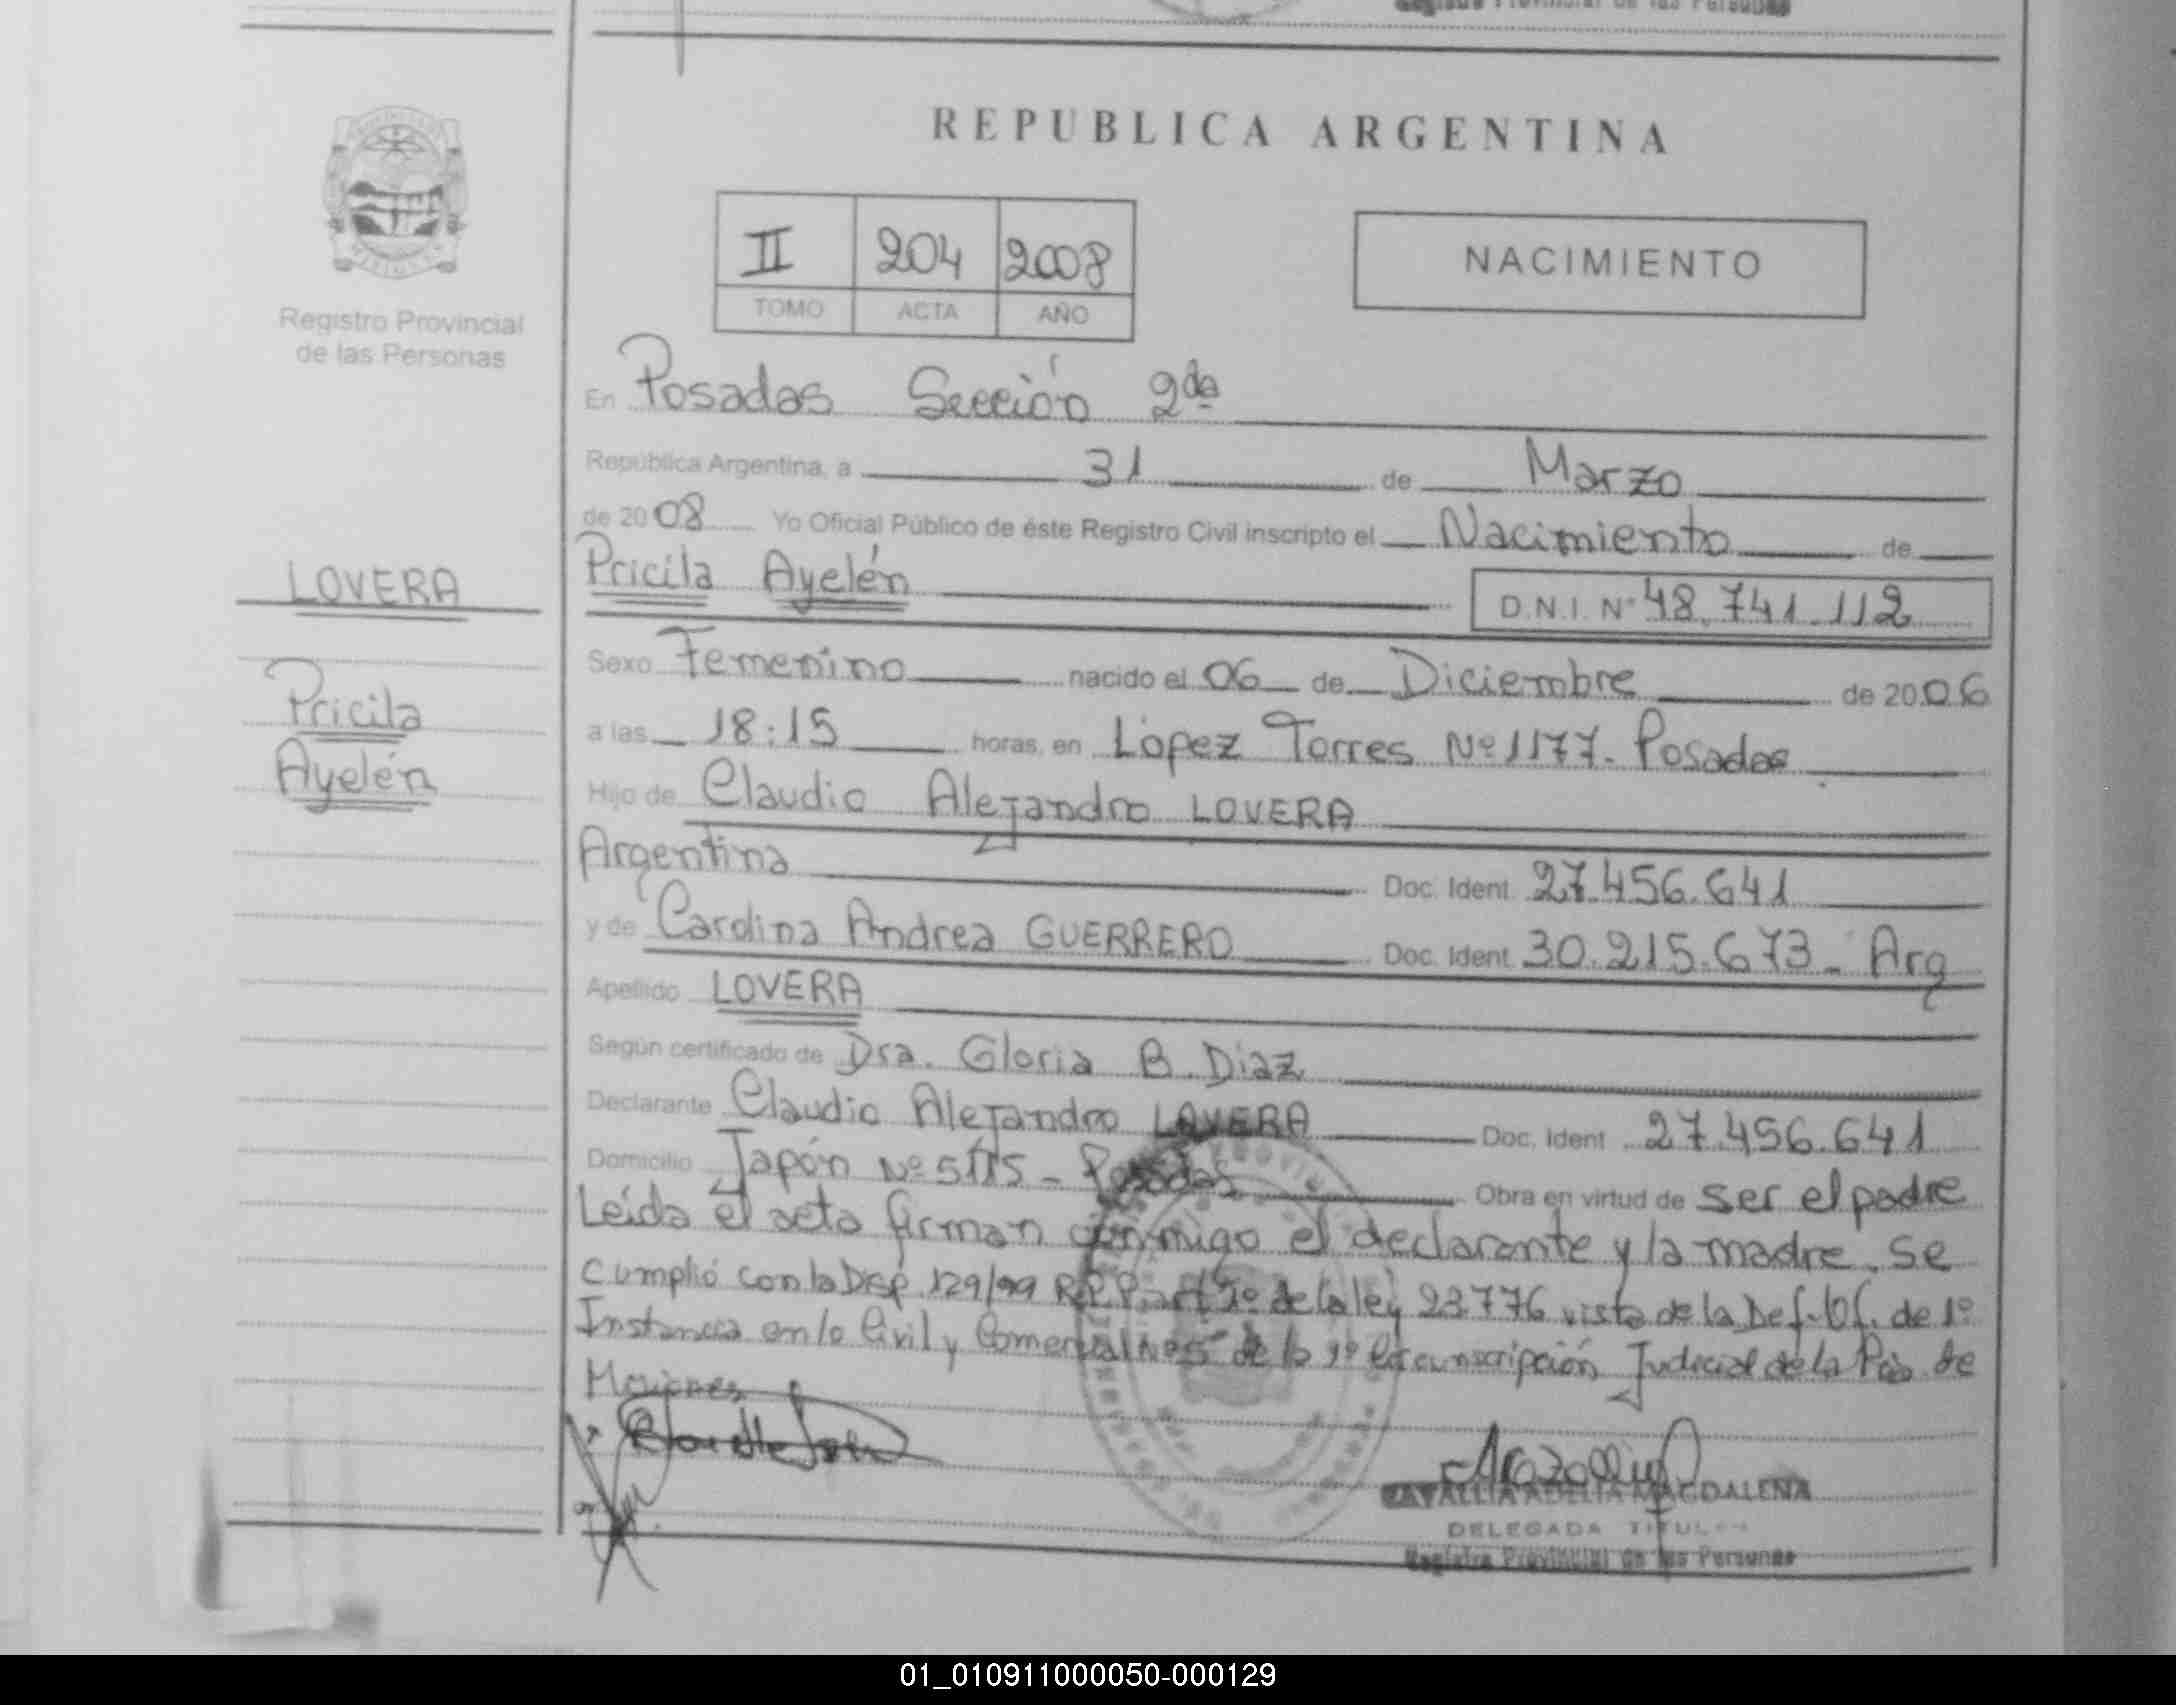 Registro Provincial de las Personas
REPUBLICA ARGENTINA
II 204 2008
TOMO ACTA AÑO
NACIMIENTO
Registro Provincial
de las Personas
En Posadas Sección 2da
República Argentina, a 31 de Marzo
de 2008 Yo Oficial Público de éste Registro Civil inscripto el Nacimiento de
LOVERA
Pricila Ayelén
D.N.I. Nº 48.741.112
Sexo Femenino nacido el 06 de Diciembre de 2006
Pricila
Ayelén
a las 18:15 horas, en López Torres Nº 1177. Posadas
Hijo de Claudio Alejandro LOVERA
Argentina Doc. Ident. 27.456.641
y de Carolina Andrea GUERRERO Doc. Ident. 30.215.673 - Arg
Apellido LOVERA
Según certificado de Dra. Gloria B. Diaz
Declarante Claudio Alejandro LOVERA Doc. Ident 27.456.641
Domicilio Japón Nº - Posadas Obra en virtud de ser el padre
Leída el acta firman conmigo el declarante y la madre. Se
Cumplió con la Disp. 129/99 R.P.P. art 1º de la ley 23.776 vista de la Def. Of. de 1º
Instancia en lo Civil y Comercial Nº5 de la 1º Circunscripción Judicial de la Pcia de
Misiones
ADELIA MAGDALENA
DELEGADA TITULAR
Registro Provincial de las Personas
01_010911000050-000129